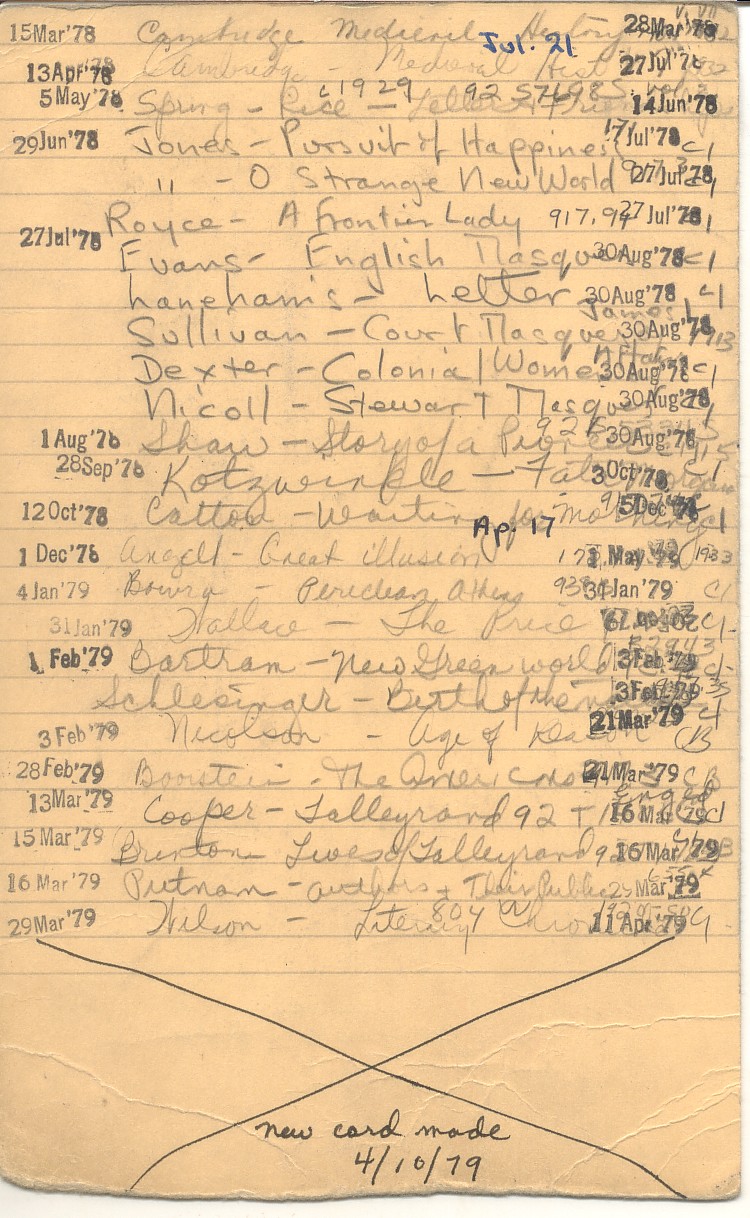 15 Mar '78 Cambridge Medieval History 28 Mar '78
Jul. 21
13 Apr '78 Cambridge - Medieval Hist 27 Jul '78
c1929 92 S7698S
5 May '78 Spring - Rice - Letters + 14 Jun '78
29 Jun '78 Jones - Pursuit of Happiness 17 Jul '78 c1
" - O Strange New World 27 Jul '78 c1
Royce - A Frontier Lady 917.94 27 Jul '78 c1
27 Jul '78
Evans - English Masques 30 Aug '78 c1
Laneham's - Letter 30 Aug '78 c1
James I
Sullivan - Court Masques 30 Aug '78 1913
Dexter - Colonial Women 30 Aug '78 c1
Nicoll - Stewart Masques 30 Aug '78 c1
1 Aug '78 Shaw - Story of a Pioneer 30 Aug '78 1915
28 Sep '78 Kotzwinkle - Fata Morgana 3 Oct '78 c1
12 Oct '78 Catton - Waiting for Morning 5 Dec '78 c1
Ap. 17
1 Dec '78 Angell - Great illusion 1933
4 Jan '79 Bowra - Periclean Athens 31 Jan '79 C1
31 Jan '79 Wallace - The Price C1
1 Feb '79 Bartram - New Green world 3 Feb '79 c1
Schlesinger - Birth of the 3 Feb '79
21 Mar '79
3 Feb '79 Nicolson - Age of Reason CB
28 Feb '79 Boorstein - The Americans 21 Mar '79 CB
13 Mar '79 Cooper - Talleyrand 92 16 Mar '79 c1
15 Mar '79 Brinton Lives of Talleyrand 16 Mar '79
16 Mar '79 Putnam - authors + Their Public Mar '79
29 Mar '79 Wilson - Literary Chronicle 11 Apr '79
804
new card made
4/10/79